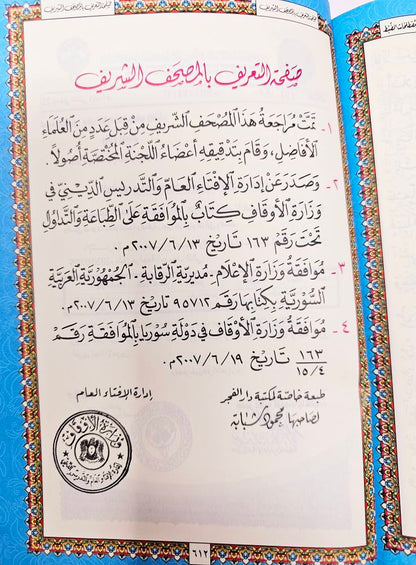 صفحة التعريف بالمصحف الشريف
١- تمَّت مُراجَعَةُ هَذَا المُصْحَفِ الشَّريفِ مِنْ قِبَلِ عَدَدٍ مِنَ العُلَمَاءِ
الأفَاضِلِ، وقَامَ بِتَدقِيقِهِ أعْضَاءُ اللَّجْنَةِ المُختَصَّةِ أُصُولاً.
٢- وَصَدَرَ عَنْ إدَارَةِ الإفْتَاءِ العَامِّ وَالتَّدريسِ الدِّينيِّ في
وِزَارَةِ الأوقَافِ كِتَابٌ بِالمُوَافَقَةِ عَلَى الطِّبَاعَةِ وَالتَّدَاوُلِ
تَحْتَ رَقْمِ ١٦٣ تَارِيخ ٢٠٠٧/٦/١٣م.
٣- مُوَافَقَةُ وِزَارَةِ الإعْلَامِ - مُديريَّةِ الرِّقَابَةِ - الجُمْهُوريَّةِ العَرَبيَّةِ
السُّوريَّةِ بِكِتَابِهَا رقم ٩٥٧١٢ تاريخ ٢٠٠٧/٦/١٣م.
٤- مُوَافَقَةُ وِزَارَةِ الأوقَافِ في دَولَةِ سُوريا بِالمُوَافَقَةِ رَقم
١٦٣
١٥/٤ تاريخ ٢٠٠٧/٦/١٩م.
طبعة خاصة لمكتبة دار الفجر
لصاحبها محمود شبابة
إدارة الإفتاء العام
وزارة الأوقاف
٦١٢